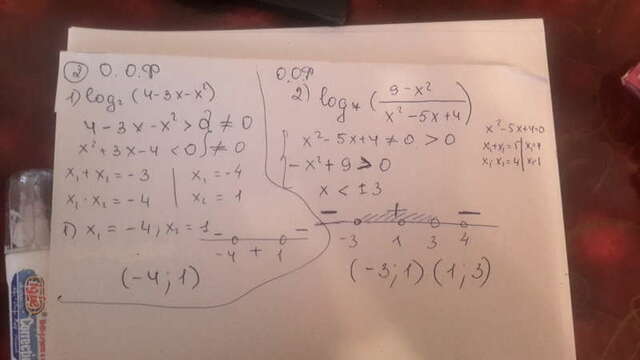 ② О.О.Ф
1) log₂ (4-3x-x²)
4-3x-x²>0 ≠0
x²+3x-4<0 ≠0
x₁+x₂=-3 | x₁=-4
x₁·x₂=-4 | x₂=1
1) x₁=-4; x₂=1
- + -
-4 1
(-4;1)
О.О.Ф
2) log₄ (9-x² / x²-5x+4)
x²-5x+4≠0>0
-x²+9>0
x<±3
x²-5x+4=0
x₁+x₂=5 | x₁=4
x₁·x₂=4 | x=1
- + -
-3 1 3 4
(-3;1) (1;3)